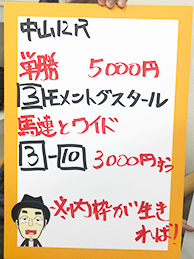 中山12R
単勝 5000円
3 モメントグスタール
馬連とワイド
3-10 3000円ずつ
内枠が生き
れば!